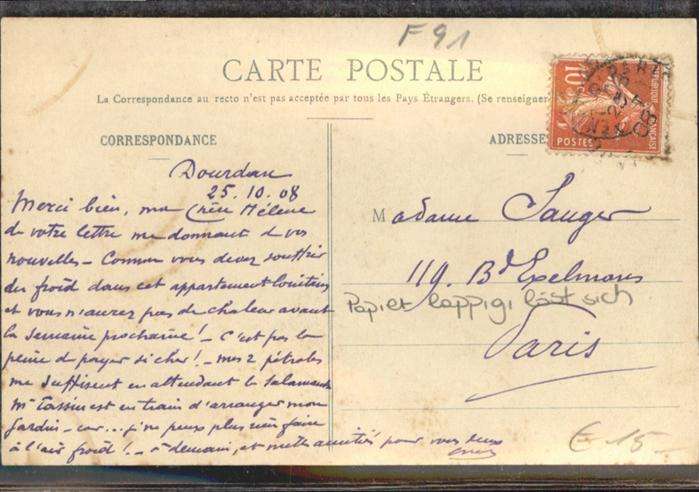 F91
CARTE POSTALE
La Correspondance au recto n'est pas acceptée par tous les Pays Étrangers. (Se renseigner
CORRESPONDANCE
ADRESSE
10
POSTES
Dourdan
25.10.08
Merci bien, ma Chère Hélène
de votre lettre me donnant de vos
nouvelles – Comme vous devez souffrir
du froid dans cet appartement
et vous n'aurez pas de chaleur avant
la semaine prochaine! – C'est pas la
peine de payer si cher! – mes 2 pétroles
me suffisent en attendant la salamandre
Mr Tassin est en train d'arranger mon
jardin – car... j'ne peux plus rien faire
à l'air froid! – à demain, et mille amitiés pour vous deux
Madame Sauger
119. Bd Exelmans
Papier lappig löst sich
Paris
€ 15-